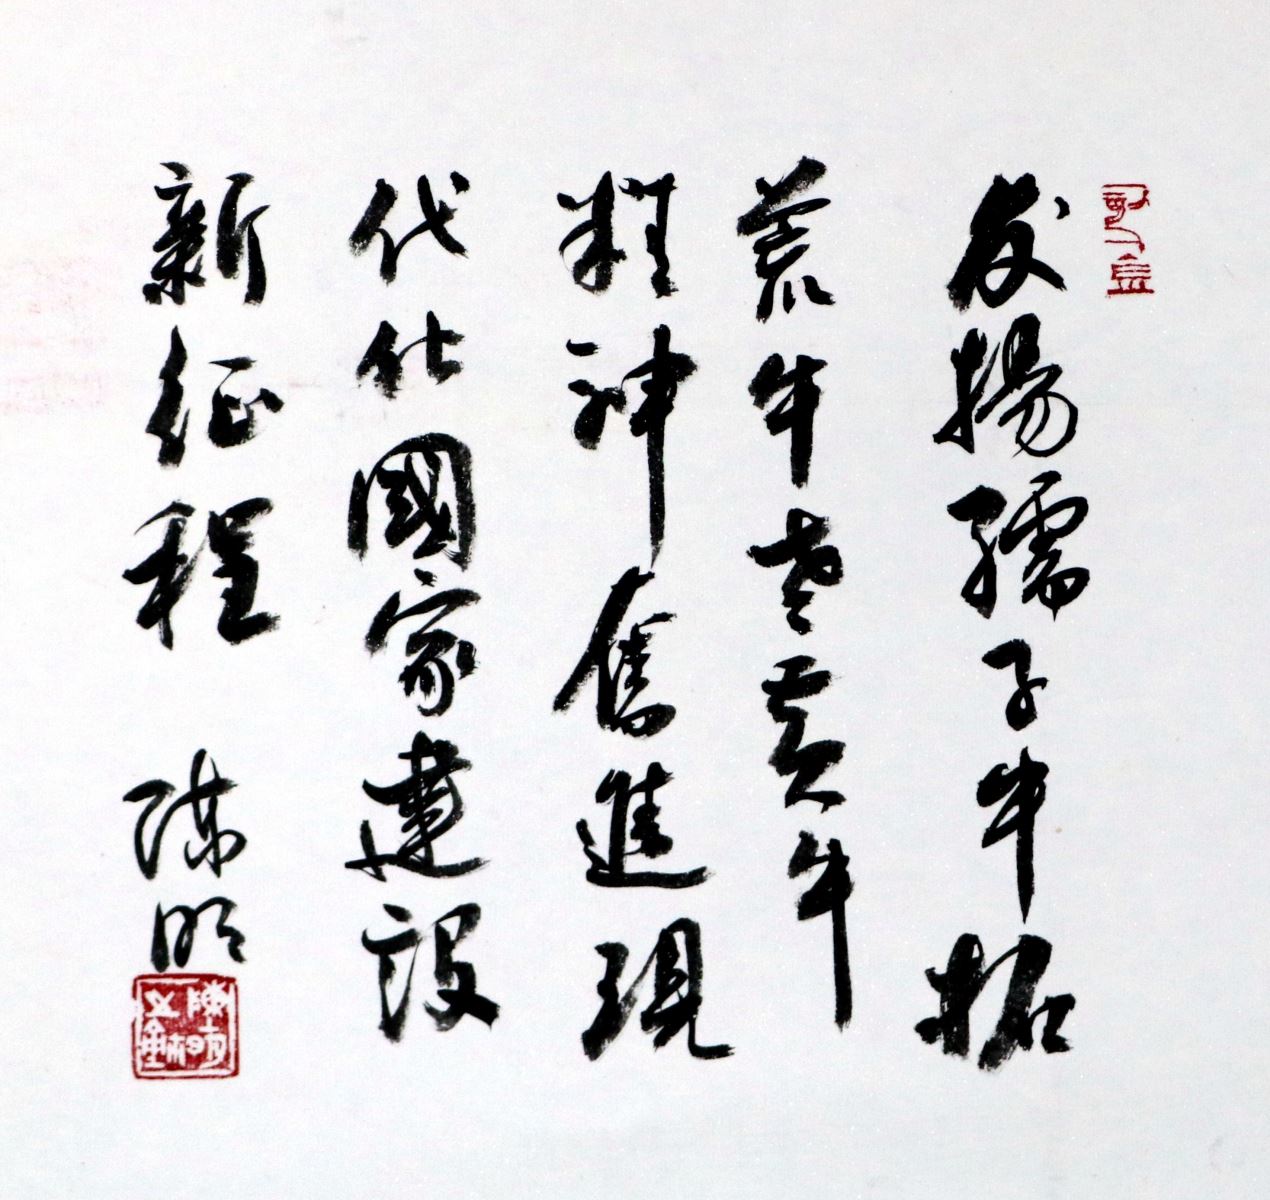 发揚孺子牛拓
荒牛老黄牛
精神奮進現
代化國家建設
新征程
陳明